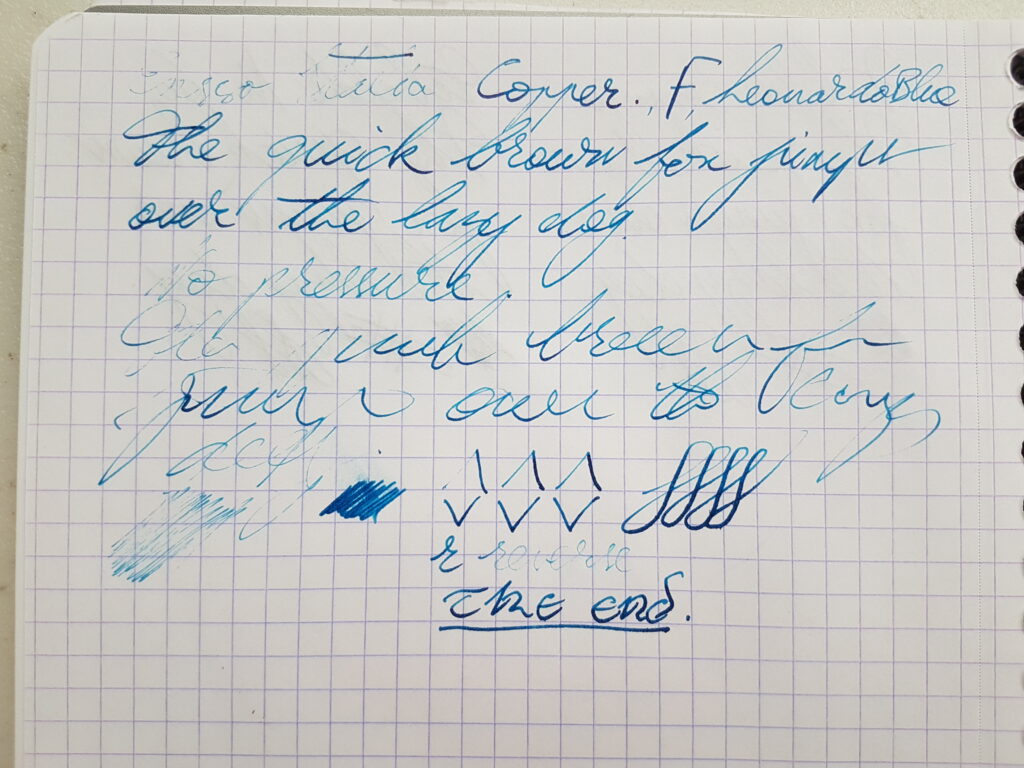 Copper. F, Leonardo Blue
The quick brown fox jumps
over the lazy dog.
No pressure.
quick brown fox
jump over the lazy
r reverse
The end.